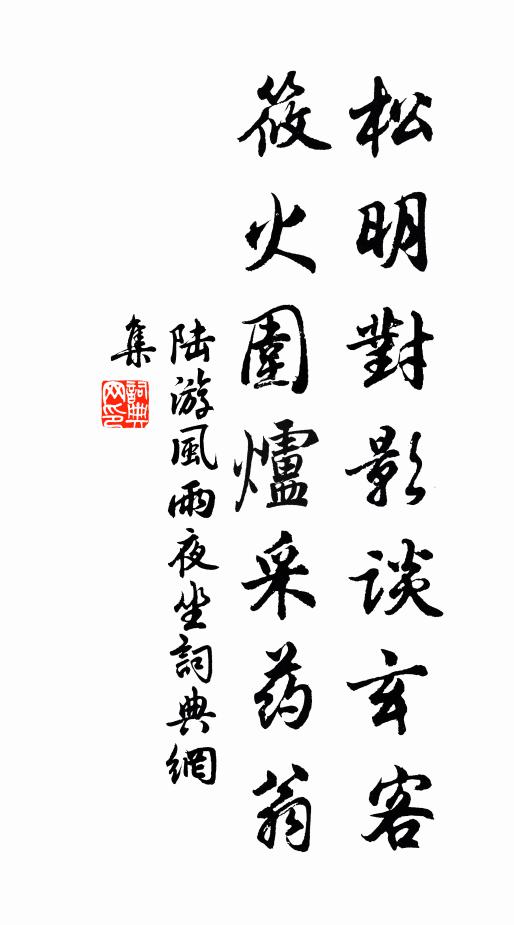 松明對影談玄客
筱火圍爐采药翁
陆游風雨夜坐詞典網
集
詞典网印